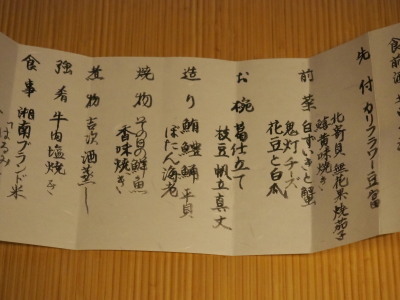 食前酒
先付 カリフラワー豆富
北寄貝 無花果 焼茄子
鱚黄味焼き
前菜 白ずいきと蟹
鬼灯 チーズ
花豆と白瓜
お椀 葛仕立て
枝豆帆立真丈
造り 鮪 鱧 鱗 平貝
ぼたん海老
焼物 その日の鮮魚
香味焼き
煮物 吉次 酒蒸し
強肴 牛肉塩焼き
食事 湘南ブランド米
「はるみ」